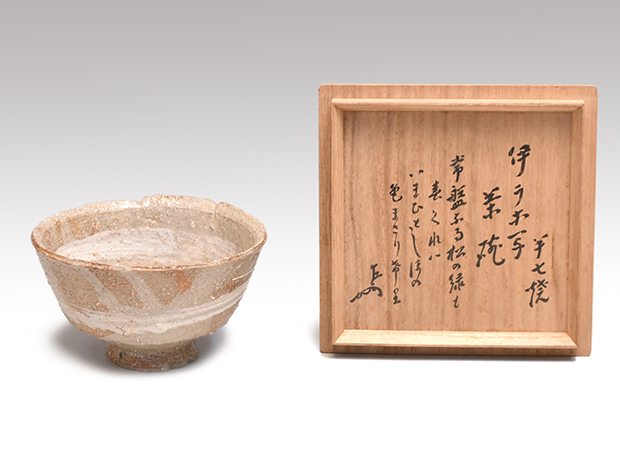 伊ラホ手
茶碗
半七焼
常盤なる松の緑も
春くれハ
いまひとしほの
色まさり希里